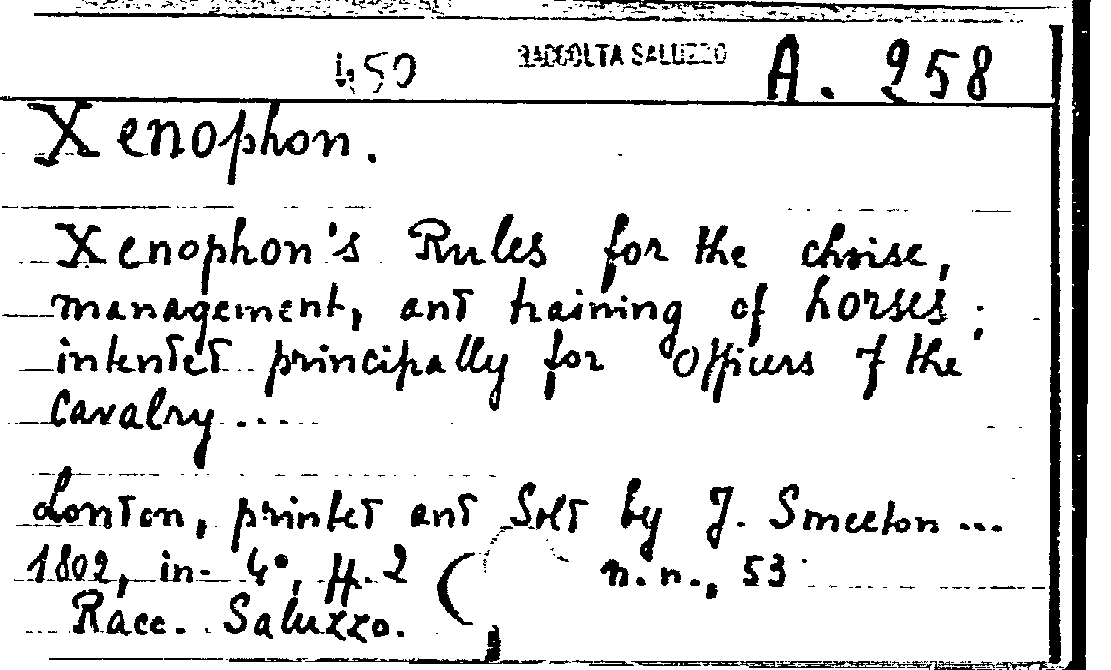 450 RACCOLTA SALUZZO A. 258
Xenophon.
Xenophon's Rules for the choise,
management, and training of horses;
intended principally for Officers of the
Cavalry...
London, printed and Sold by J. Smeeton...
1802, in-4°, ff. 2 n.n., 53
Racc. Saluzzo.